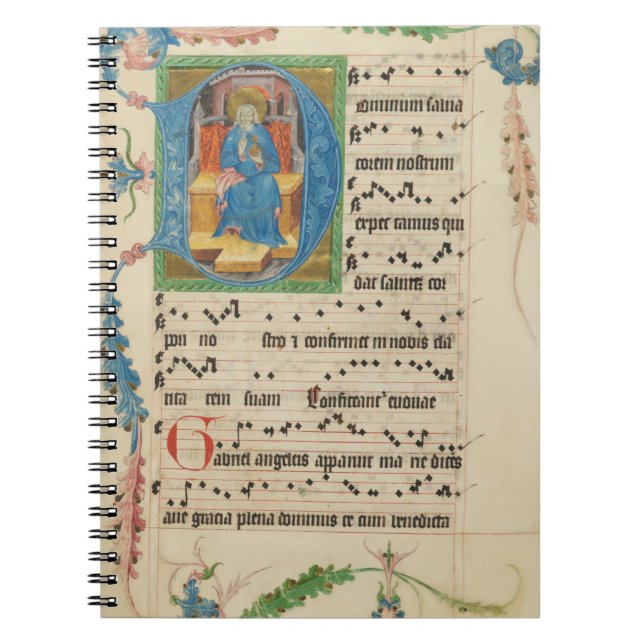 Dominum salva
torem nostrum
expec tamus qui
dat salutem cor
pori no stro et confirmet in nobis cla
rita tem suam Confiteant' euouae
Gabriel angelus apparuit ma rie dicēs
aue gracia plena dominus te cum benedicta